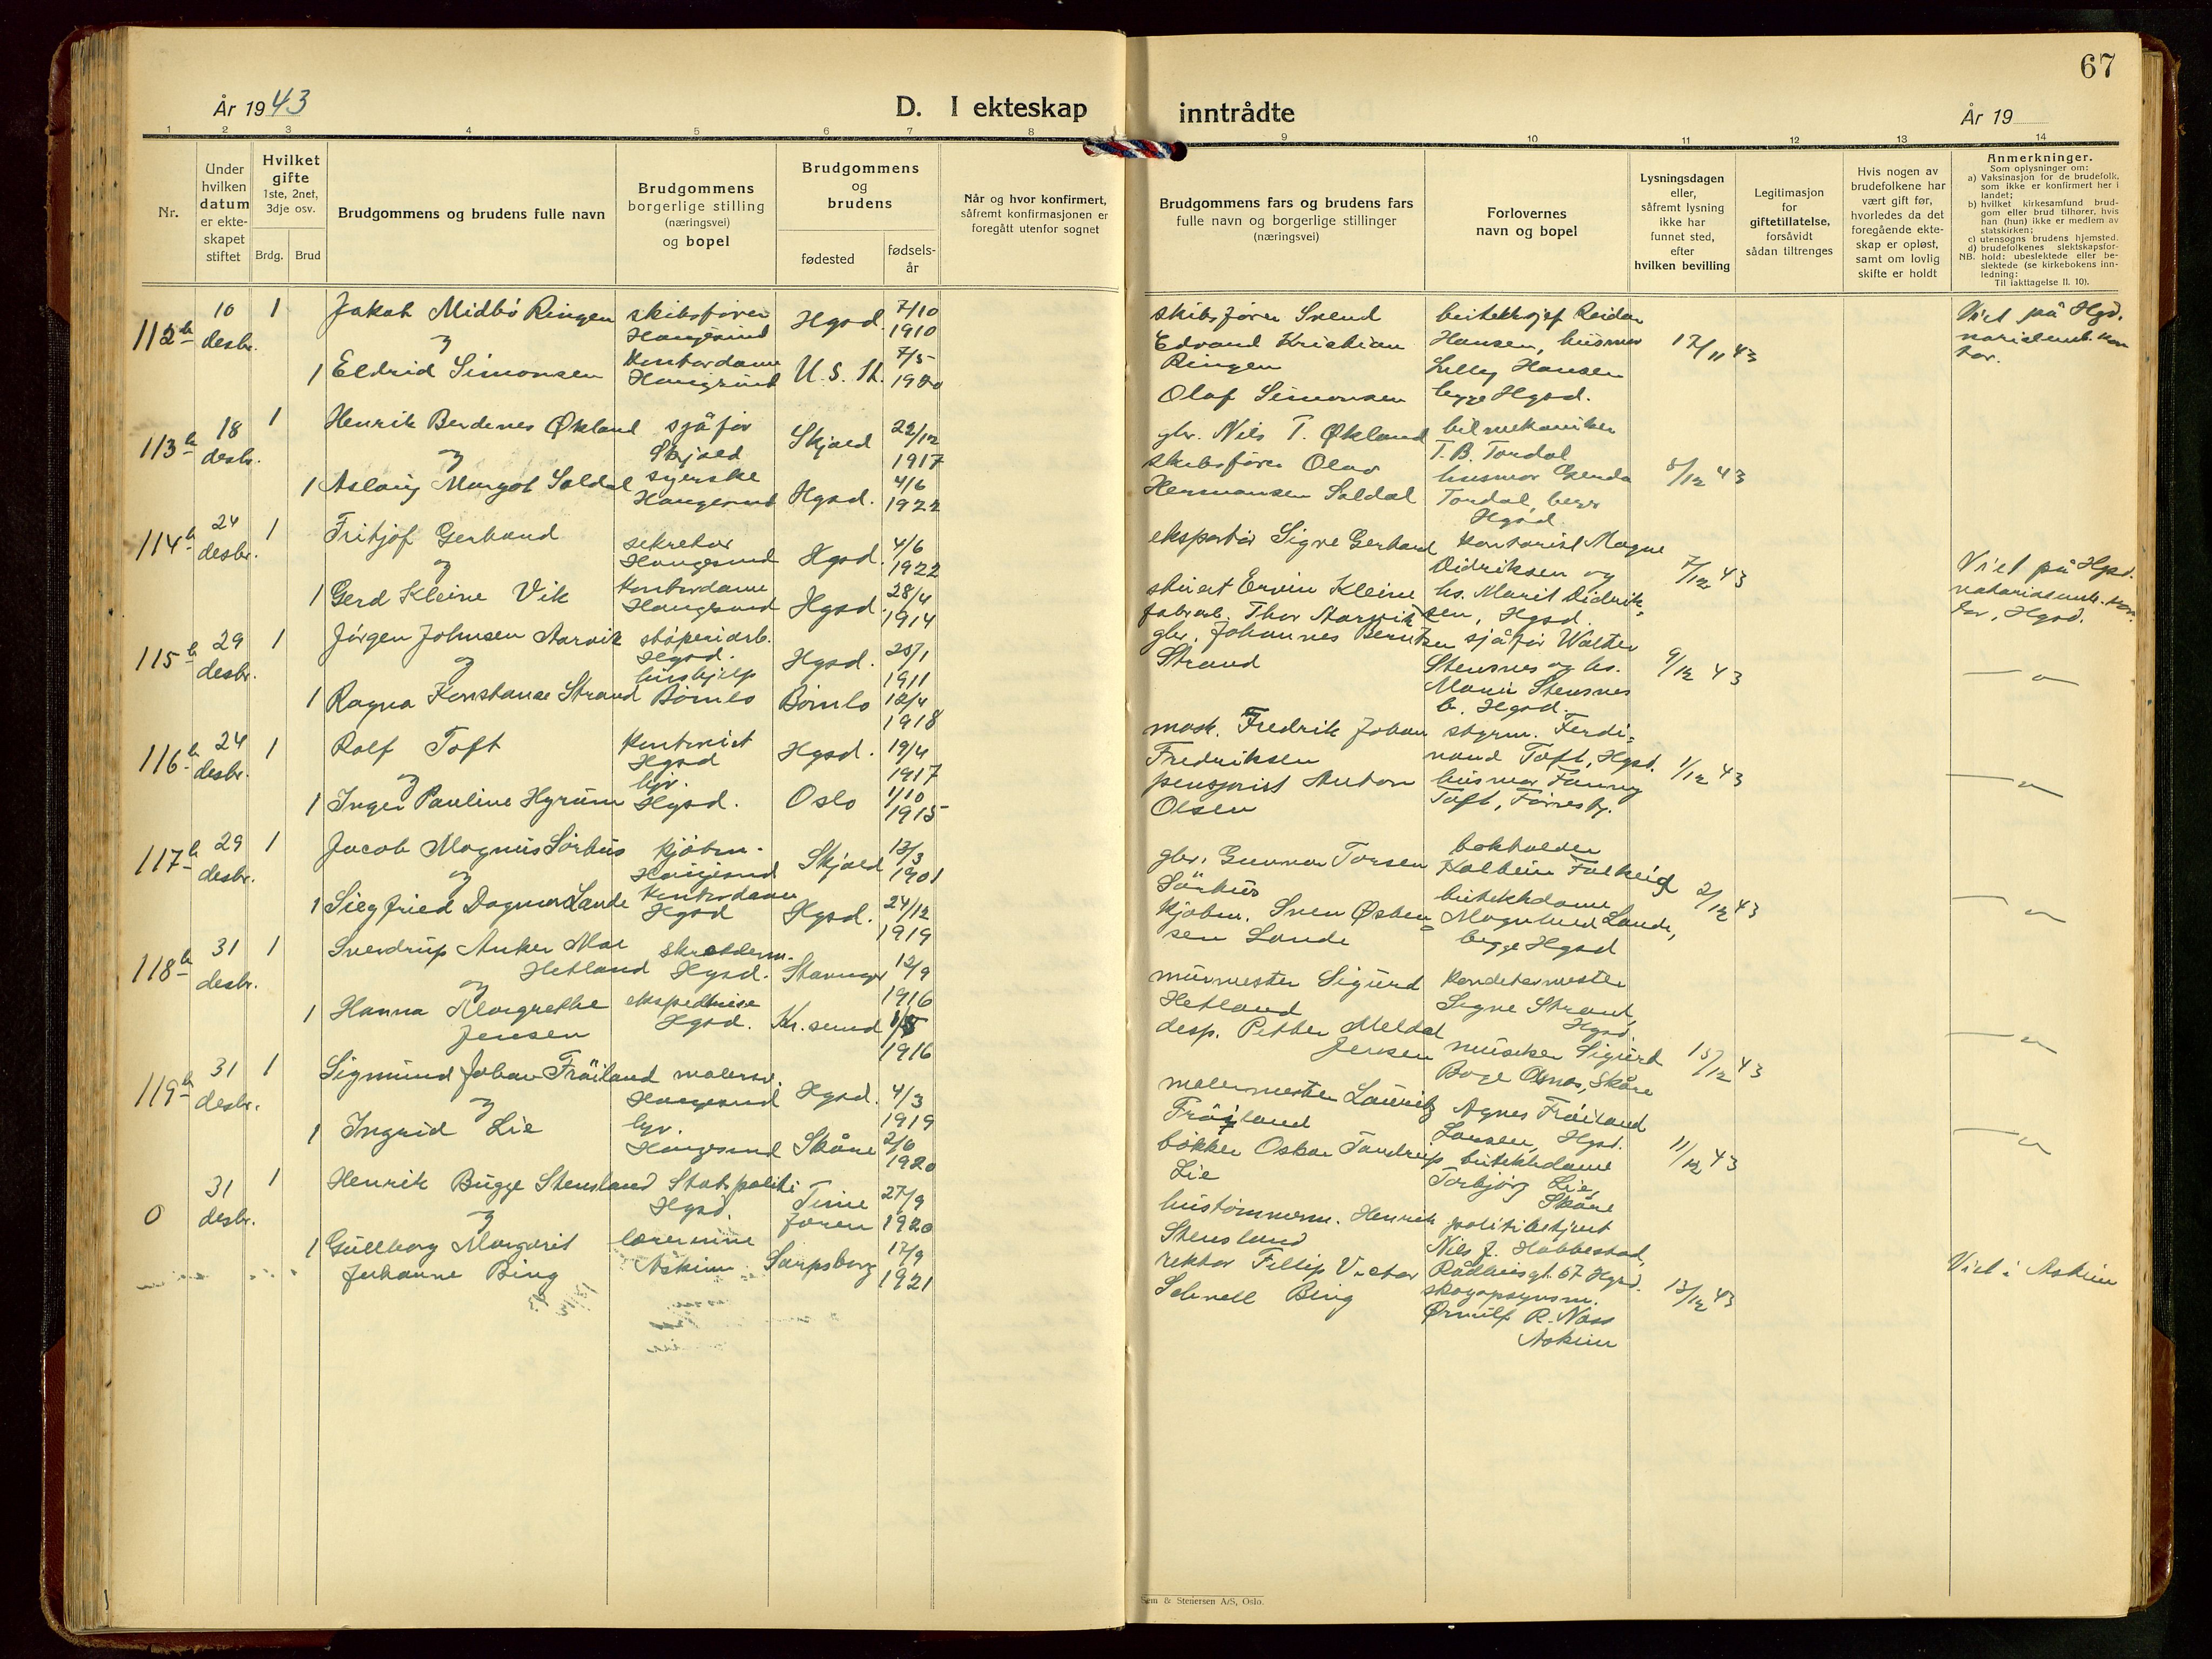 67
År 1943
D. I ekteskap inntrådte
År 19
1 2 3 4 5 6 7 8 9 10 11 12 13 14
Nr.
Under
hvilken
datum
er ekte-
skapet
stiftet
Hvilket
gifte
1ste, 2net,
3dje osv.
Brdg. Brud
Brudgommens og brudens fulle navn
Brudgommens
borgerlige stilling
(næringsvei)
og bopel
Brudgommens
og
brudens
fødested
fødsels-
år
Når og hvor konfirmert,
såfremt konfirmasjonen er
foregått utenfor sognet
Brudgommens fars og brudens fars
fulle navn og borgerlige stillinger
(næringsvei)
Forlovernes
navn og bopel
Lysningsdagen
eller,
såfremt lysning
ikke har
funnet sted,
efter
hvilken bevilling
Legitimasjon
for
giftetillatelse,
forsåvidt
sådan tiltrenges
Hvis nogen av
brudefolkene har
vært gift før,
hvorledes da det
foregående ekte-
skap er opløst,
samt om lovlig
skifte er holdt
Anmerkninger.
Som oplysninger om:
a) Vaksinasjon for de brudefolk,
som ikke er konfirmert her i
landet;
b) hvilket kirkesamfund brud-
gom eller brud tilhører, hvis
han (hun) ikke er medlem av
statskirken;
c) utensogns brudens hjemsted.
d) brudefolkenes slektskapsfor-
NB. hold: ubeslektede eller be-
slektede (se kirkebokens inn-
ledning:
Til iakttagelse II. 10).
112b
10
desbr.
1
Jakob Midbö Ringen
og
1 Eldrid Simonsen
skibsfører
Haugesund
kontordame
Haugesund
Hgsd.
7/10
1910
U.S.A.
7/5
1920
skibsfører Svend
Edvard Kristian
Ringen
Olaf Simonsen
butikksjef Reidar
Hansen, husmor
Lilly Hansen
begge Hgsd.
17/11 43
Viet på Hgsd.
113b
18
desbr.
1
Henrik Berdines Økland
og
1 Aslaug Margot Saldal
sjåfør
Skjold
syerske
Haugesund
Skjold
22/12
1917
Hgsd.
4/6
1922
gbr. Nils T. Økland
skibsfører Olav
Hermansen Saldal
bilmekaniker
T.B. Tordal
husmor Gerda
Tordal, begge
Hgsd
8/12 43
114b
24
desbr.
1
Fritjof Gerhard
og
1 Gerd Kleine Vik
sekretær
Haugesund
kontordame
Haugesund
Hgsd.
4/6
1922
Hgsd.
28/4
1914
eksportør Sigve Gerhard
stuert Ervin Kleine
kontorist Magne
Didriksen og
hs. Marit Didrik-
sen, Hgsd.
7/12 43
Viet på Hgsd.
notariatsamt. kon-
tor, Hgsd.
115b
29
desbr.
1
Jørgen Johnsen Aarvik
og
1 Ragna Konstanse Strand
støperiarb.
Hgsd.
hushjelp
Bömlo
Hgsd.
25/1
1911
Bömlo
12/4
1918
fabrarb. Thor Aarvik
gbr. Johannes Berntsen
Strand
sjåfør Walter
Stensnes og hs.
Marie Stensnes
b. Hgsd.
9/12 43
— " —
116b
24
desbr.
1
Rolf Toft
og
1 Inger Pauline Hyrum
kontorist
Hgsd
hjv.
Hgsd.
Hgsd.
19/4
1917
Oslo
1/10
1915
mask. Fredrik Johan
Fredriksen
pensjonist Anton
Olsen
styrm. Ferdi-
nand Toft, Hgsd.
husmor Fanny
Toft, Førresfj.
1/12 43
— " —
117b
29
desbr.
1
Jacob Magnus Sörhus
og
1 Siegfried Dagmar Lande
kjöbm.
Haugesund
kontordame
Hgsd
Skjold
13/3
1901
Hgsd.
24/12
1919
gbr. Gunnar Torsen
Sörhus
kjöbm. Sven Østen-
sen Lande
bokholder
Kolbein Falkeid
butikkdame
Magnhild Lande,
begge Hgsd
2/12 43
— " —
118b
31
desbr.
1
Sverdrup Anker Mar
Hetland
og
1 Hanna Margrethe
Jensen
skrædderm.
Hgsd.
ekspeditrise
Hgsd.
Stavanger
12/9
1916
Kr.sund
1/5
1916
murmester Sigurd
Hetland
desp. Petter Meldal
Jensen
konditormester
Signe Strand,
Hgsd.
musiker Sigurd
Boge Osnes, Skåre
15/12 43
— " —
119b
31
desbr.
1
Sigmund Johan Fröiland
og
1 Ingrid Lie
malersv.
Haugesund
hjv.
Haugesund
Hgsd.
4/3
1919
Skåre
2/6
1920
malermester Lauritz
Fröiland
bökker Oskar Tandrup
Lie
Agnes Fröiland
Larsen, Hgsd.
butikkdame
Torbjörg Lie,
Skåre
11/12 43
— " —
0
31
desbr.
1
Henrik Bugge Stensland
og
1 Gullborg Margarit
Johanne Bing
Statspoliti
Hgsd.
lærerinne
Askim
Time
Jæren
27/9
1920
Sarpsborg
17/9
1921
hustömmerm. Henrik
Stensland
rektor Fillip Victor
Schnell Bing
politibetjent
Nils J. Habbestad,
Rådhusgt. 67 Hgsd.
skogopsynsm.
Ørnulf R. Næss
Askim
13/12 43
Viet i Askim
Sem & Stenersen A/S, Oslo.